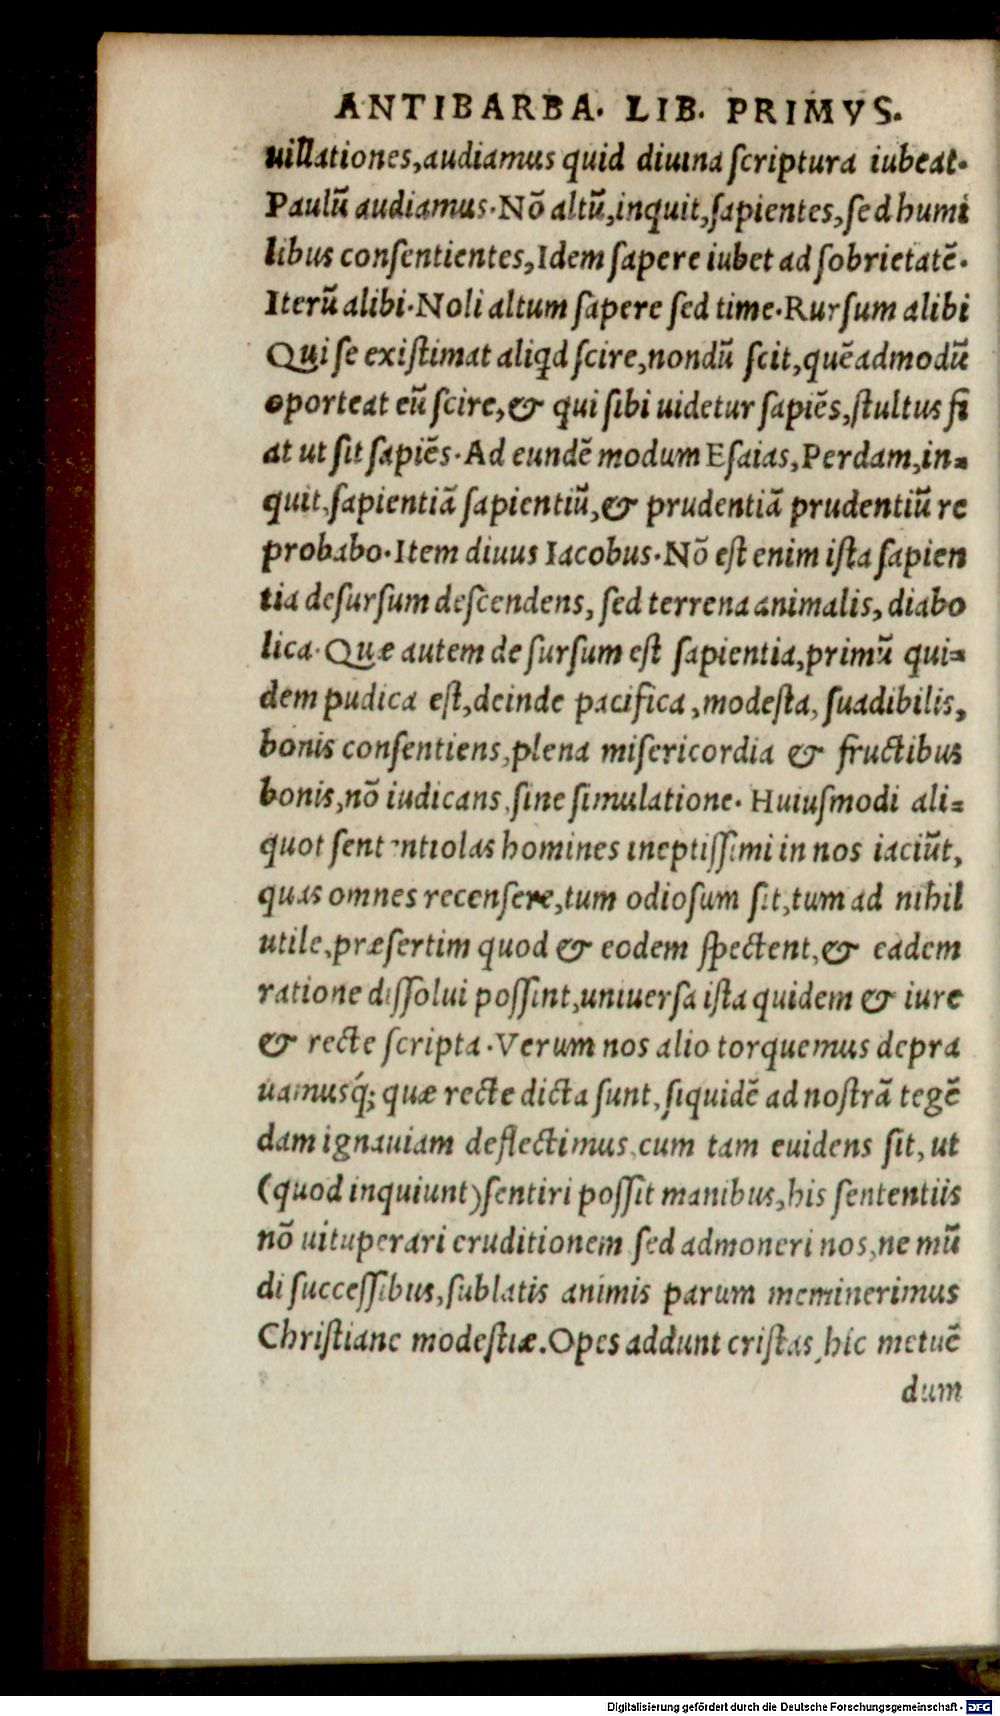 ANTIBARBA. LIB. PRIMVS.
uillationes,audiamus quid diuina ſcriptura iubeat.
Paulũ audiamus.Nõ altũ,inquit,ſapientes,ſed humi
libus conſentientes,Idem ſapere iubet ad ſobrietatẽ.
Iterũ alibi.Noli altum ſapere ſed time.Rurſum alibi
Qui ſe exiſtimat aliqd ſcire,nondũ ſcit,quẽadmodũ
oporteat eũ ſcire,& qui ſibi uidetur ſapiẽs,ſtultus fi
at ut ſit ſapiẽs.Ad eundẽ modum Eſaias,Perdam,in=
quit,ſapientiã ſapientiũ,& prudentiã prudentiũ re
probabo.Item diuus Iacobus.Nõ eſt enim iſta ſapien
tia deſurſum deſcendens, ſed terrena animalis, diabo
lica.Quæ autem de ſurſum eſt ſapientia,primũ qui=
dem pudica eſt,deinde pacifica,modeſta, ſuadibilis,
bonis conſentiens,plena miſericordia & fructibus
bonis,nõ iudicans,ſine ſimulatione. Huiuſmodi ali=
quot ſententiolas homines ineptiſſimi in nos iaciũt,
quas omnes recenſere,tum odioſum ſit,tum ad nihil
utile,præſertim quod & eodem ſpectent,& eadem
ratione diſſolui poſſint,uniuerſa iſta quidem & iure
& recte ſcripta.Verum nos alio torquemus depra
uamusq́; quæ recte dicta ſunt,ſiquidẽ ad noſtrã tegẽ
dam ignauiam deflectimus,cum tam euidens ſit, ut
(quod inquiunt)ſentiri poſſit manibus,his ſententiis
nõ uituperari eruditionem ſed admoneri nos,ne mũ
di ſucceſſibus,ſublatis animis parum meminerimus
Chriſtiane modeſtiæ.Opes addunt criſtas,hic metuẽ
dum
Digitalisierung gefördert durch die Deutsche Forschungsgemeinschaft - DFG